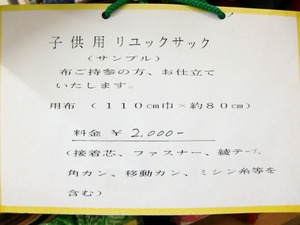 子供用リュックサック
(サンプル)
布ご持参の方、お仕立て
いたします。
用布 (110㎝巾×約80㎝)
料金 ¥ 2,000-
(接着芯、ファスナー、綾テープ、
角カン、移動カン、ミシン糸等を
含む)